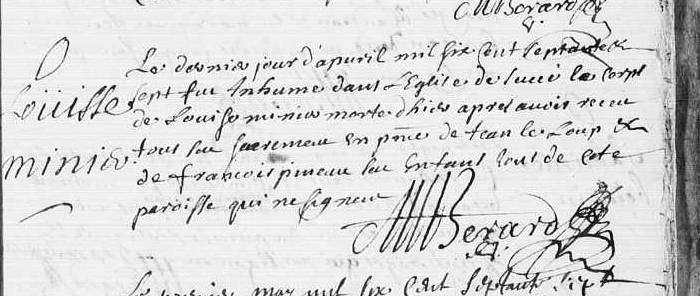 MBerard
Le dernier jour d'apuril mil six cent septante &
Loüisse
sept fut Inhumé dans L'Eglise de Lucé le corps
de Louise minier morte d'hier apres avoir receu
minier
tous les sacremens En pnce de Jean le Loup &
de francois pineau les Enfans tous de cete
paroisse qui ne signent
MBerard
Le premier may mil six cent septante sept